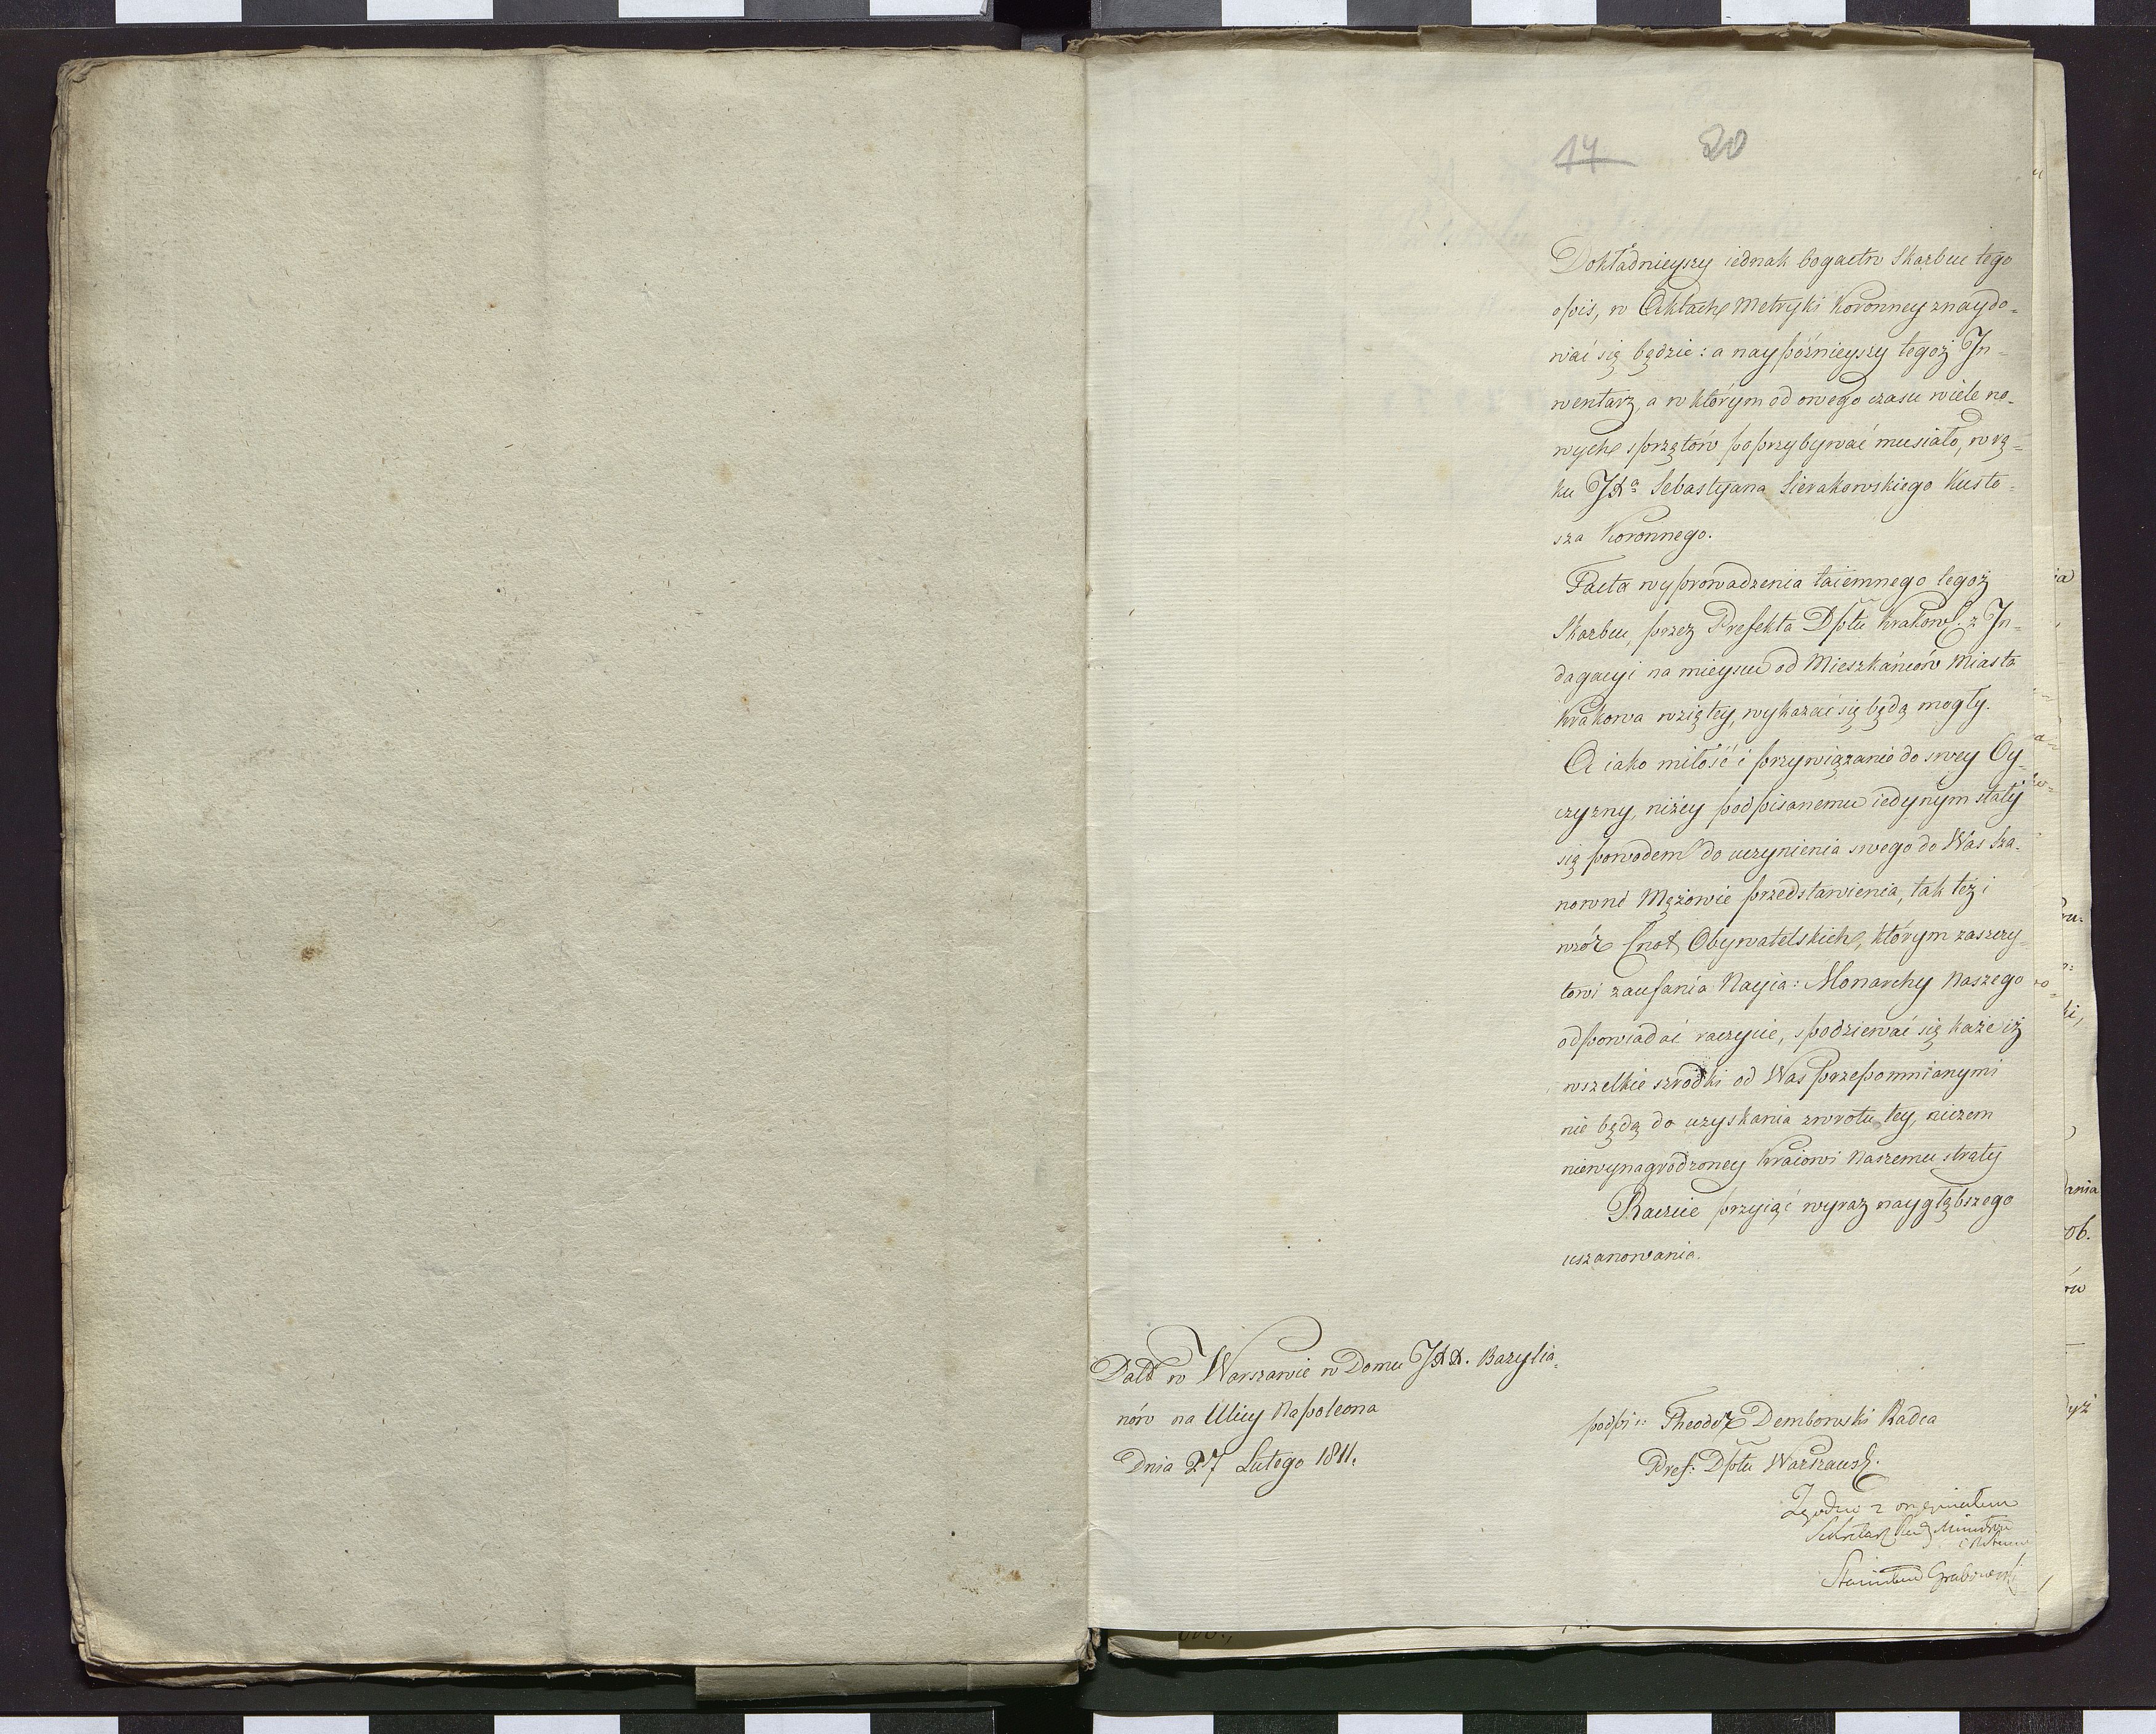 14 20
Dokładnieyszy iednak bogactw Skarbu tego
opis, w Aktach Metryki Koronney znaydo=
wać się będzie: a naypóźnieyszy tegoż In=
wentarz, a w którym od owego czasu wiele no=
wych sprzętów poprzybywać musiało, w rę=
ku JXa Sebastyana Sierakowskiego Kusto=
sza Koronnego.
Facta wyprowadzenia taiemnego tegoż
Skarbu, przez Prefekta Dptu Krakows: z In=
dagacyi na mieyscu od Mieszkańców Miasta
Krakowa wziętey, wykazać się będą mogły.
A iako miłość i przywiązanie do swey Oy=
czyzny, niżey podpisanemu iedynym stały
się powodem do uczynienia swego do Was Sza=
nowni Mężowie przedstawienia, tak też i
wzór Cnot Obywatelskich, którym zaszczy=
towi zaufania Nayia: Monarchy Naszego
odpowiadać raczycie, spodziewać się każe iż
wszelkie szrodki od Was przepomnianymi
nie będą do uzyskania zwrotu tey, niczem
niewynagrodzoney Kraiowi Naszemu straty
Raczcie przyiąć wyraz naygłębszego
uszanowania.
Datt w Warszawie w Domu JXX. Bazylia=
nów na Ulicy Napoleona
Dnia 27 Lutego 1811.
podpis: Theodor Dembowski Radca
Pref: Dptu Warszaws:
Zgodno z oryginałem
Sekretarz Rady Ministrów
Stanisław Grabowski